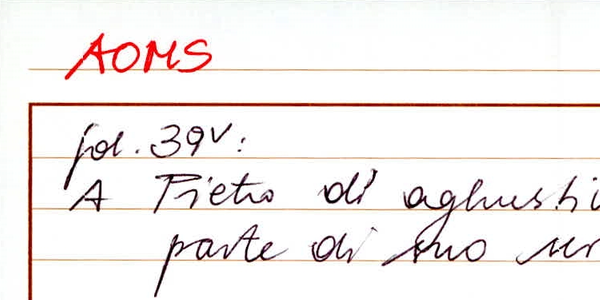 AOMS
fol. 39v:
A Pietro di aghusti
parte di suo ser